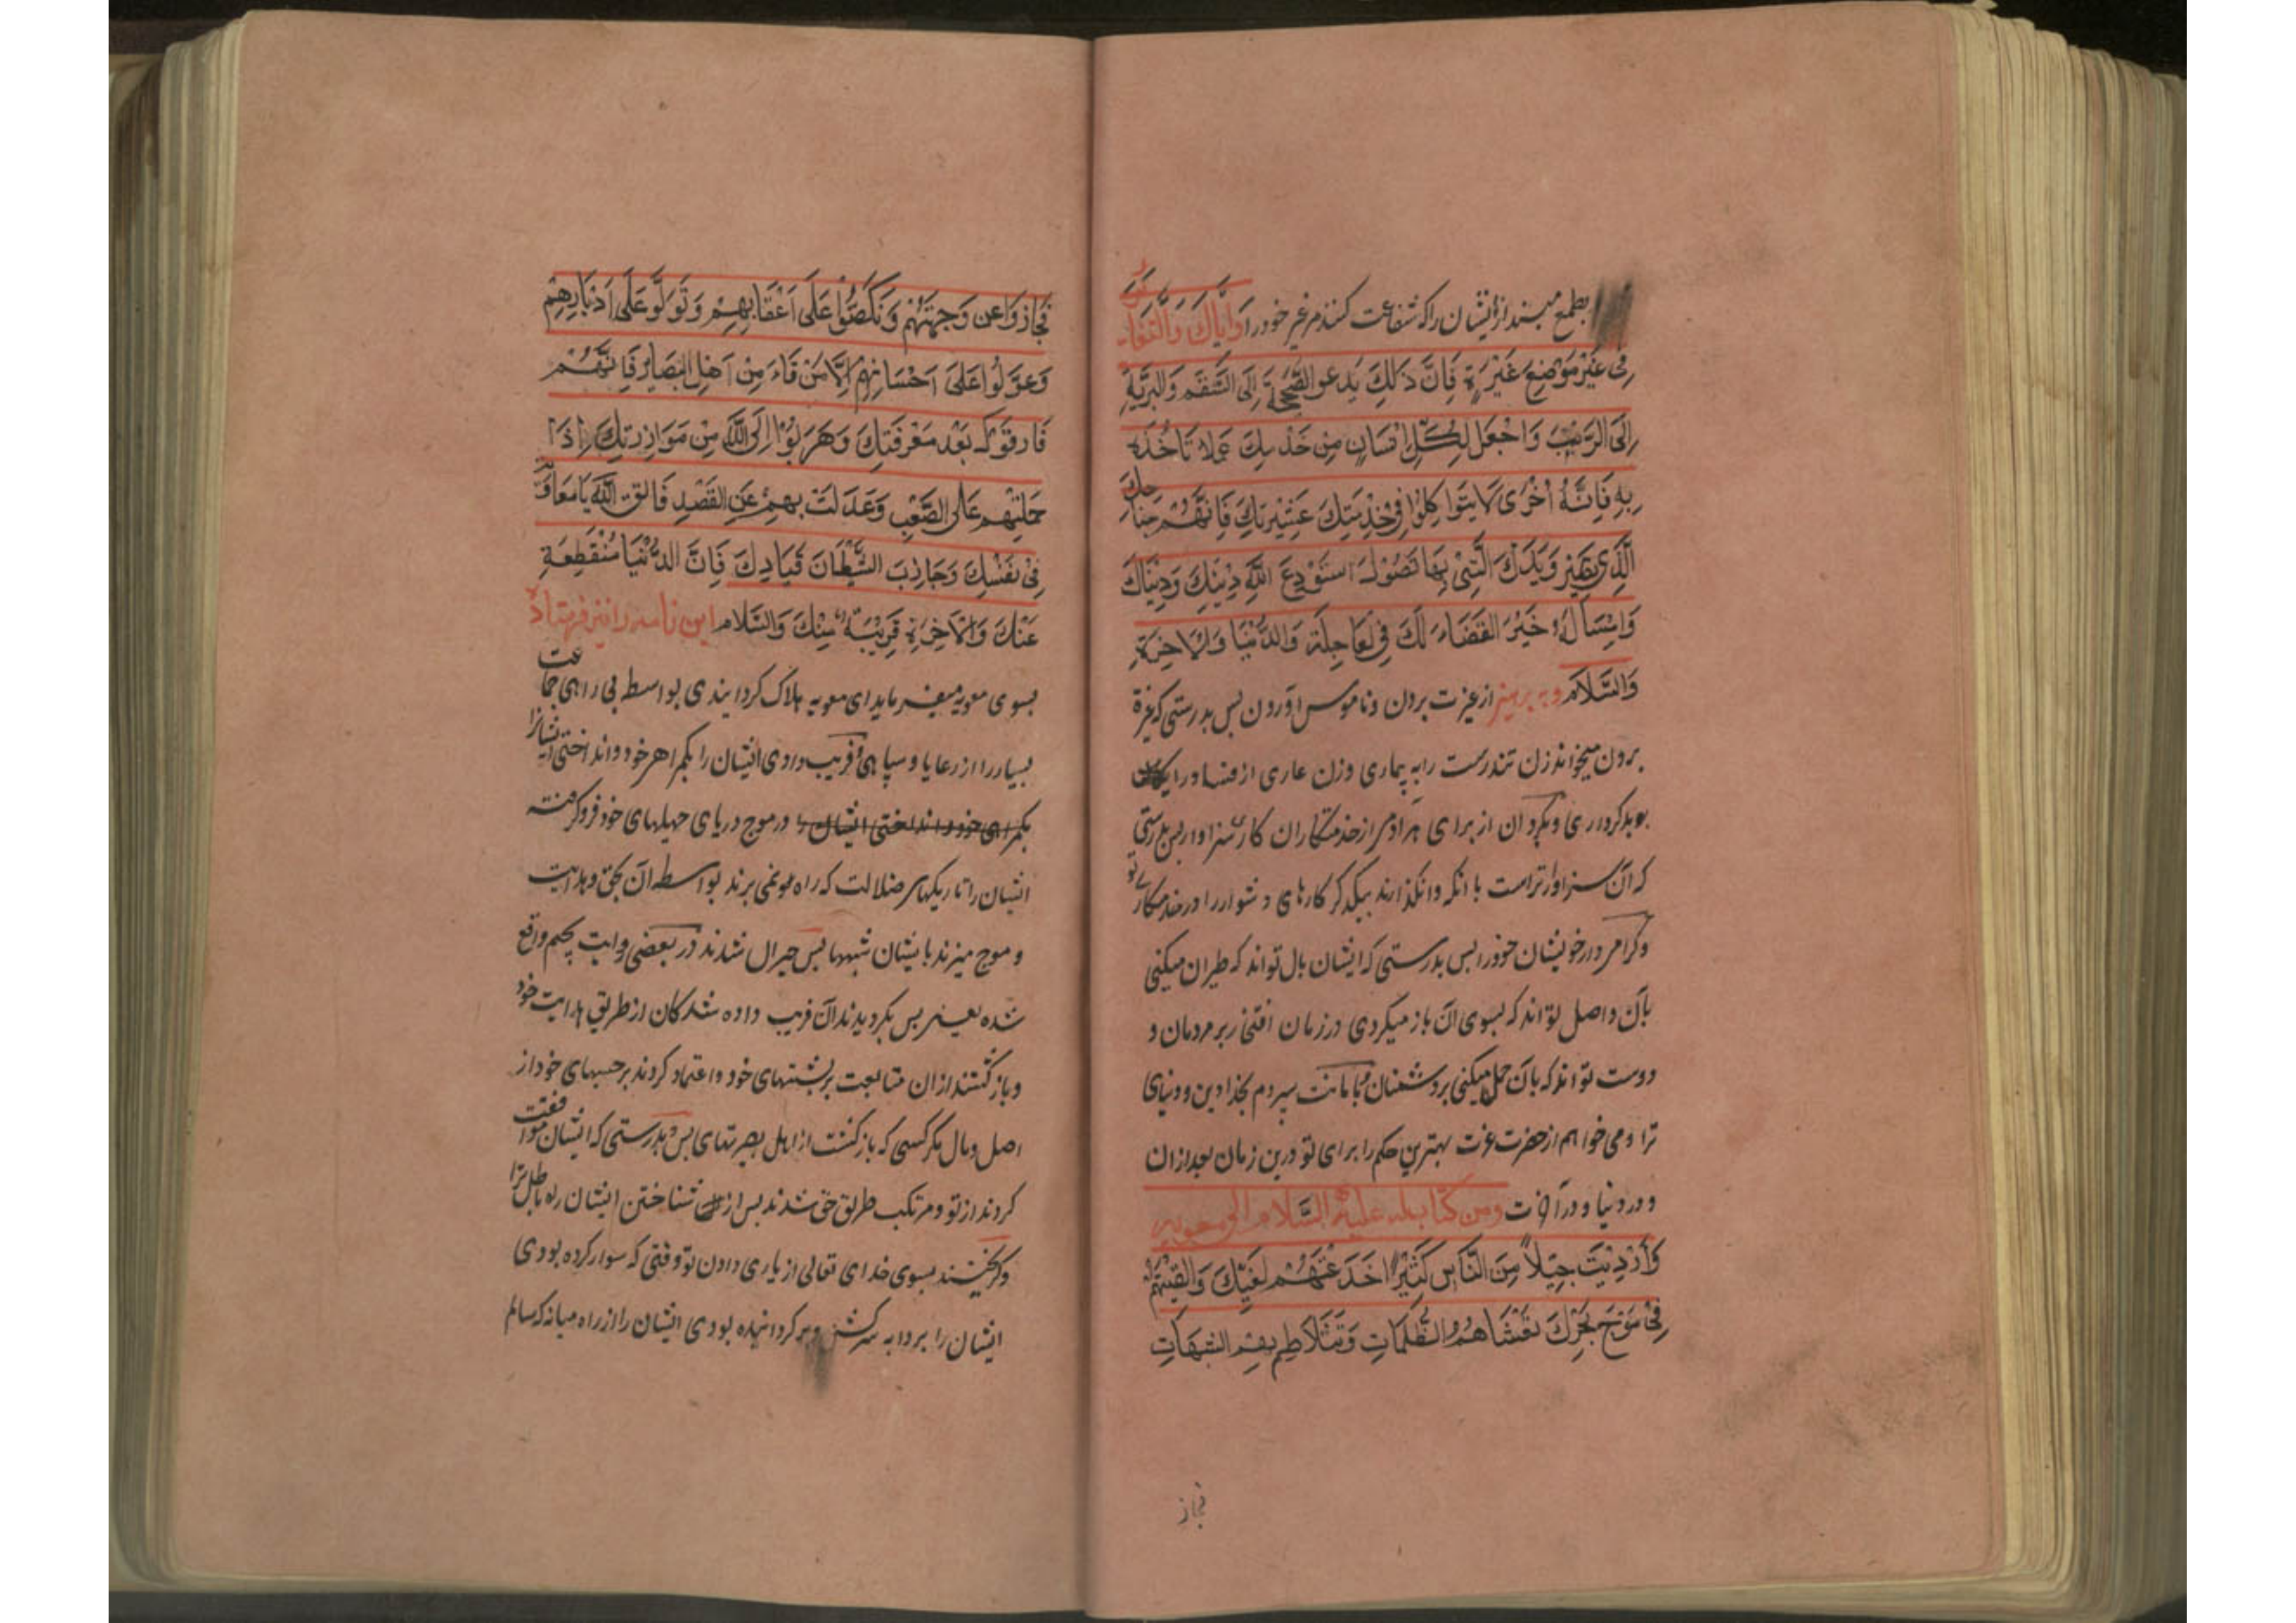 بطمع میند از ایشان را که شفاعت کنند مر غیر خود را وَاِیَّاكَ وَالتَّغَایُرَ
فِی غَیْرِ مَوْضِعِ غَیْرَةٍ فَاِنَّ ذٰلِكَ یَدعو الصَّحِیْحَةَ اِلَی السَّقَمِ وَالبَرِیَّةِ
اِلَی الرَّیْبِ وَاجْعَل لِکُلِّ اِنْسَانٍ مِن خَدَمِكَ عَمَلا تَأخُذُهُ
بِهِ فَاِنَّهُ اَخْرٰی لَایَتَوَاکِلُوْا فِی خِذْمَتِكَ عَشِیْرَتِكَ فَاِنَّهُمْ جَنَاحُكَ
الَّذِی تَطِیْرُ وَیَدَكَ الَّتِیْ بِهَا تَصُوْلُ اسْتَوْدِعَ اللّٰهَ دِیْنَكَ وَدِنْیَاكَ
وَاسْئَالُهُ خَیْرَ القَضَاءِ لَكَ فِی لعَاجِلَةِ وَالدُّنْیَا وَالاٰخِرَةِ
وَالسَّلَام وبه پرهیز از غیرت بردن و ناموس اوردن بس بدرستی که غیرة
بردن میخواند زن تندرست را به بیماری وزن عاری از فساد را
بوبدکرداری وبگردان از برای هر ادمی از خدمتکاران کار سزاوار بس بدرستی
که آن سزاوارتر است با انکه وانگذارند بیکدیگر کارهای دشوار را در خدمتکاری تو
وگرامی دار خویشان خود را بس بدرستی که ایشان بال تواند که طیران میکنی
بآن واصل تواند که بسوی ان باز میکردی در زمان افتخار بر مردمان و
دوست تواند که بآن حمل میکنی بردشمنان بامانت سپردم بخدا دین ودنیای
ترا ومی خواهم از حضرت عزت بهترین حکم را برای تو درین زمان بعد از ان
و در دنیا و در آخرت ومن کتاب له علیه السَّلام الی معویه
وَاَرْدَیْتَ جِیْلاً مِنَ النَّاسِ کَثِیْرًا خَدَعْتَهُمْ بِغَیِّكَ وَالقَیْتَهُمْ
فِیْ مَوْجِ بَحْرِكَ تَغْشَاهُمُ الظُّلُمَاتِ وَتَتَلَاطِمُ بِهِمُ الشُبَهَاتِ
فجاز
فَجَازوَا عن وَجهَتِهِمْ وَنَکَصُوْا عَلَی اَعْقَابِهِمْ وَتَوَلَّوْ عَلَی اَدْبَارِهِمْ
وَعَوَّلُوْا عَلَی اَحْسَابِهِمْ اِلَّا مَنْ فَاءَ مِنْ اَهْلِ البَصَایِرِ فَاِنَّهُمْ
فَارقوْكَ بَعْدَ مَعْرِفَتِكَ وَهَرَبُوْا اِلَی اللّٰهِ مِنْ مَوَازِرَتِكَ اِذَا
حَمَلْتَهُم عَلَی الصَّعْبِ وَعَدَلْتَ بِهِمْ عَنِ القَصْدِ فَاتق اللّٰهَ یَا مَعَاوِیَةُ
فِیْ نَفْسِكَ وَجَاذِبَ الشَّیْطَانَ قَیَادِكَ فَاِنَّ الدُّنْیَا مُنْقَطِعَةِ
عَنْكَ وَالْاٰخِرَةِ قَرِیْبَةٌ مِنْكَ وَالسَّلام این نامه را نیز فرستاده
بسوی معویه میفرماید ای معویه هلاک کردایندی بواسطه بی راهی جماعت
بسیار را از رعایا و سپاهی فریب دادی ایشان را بگمراهی خود وانداختی ایشانرا
بگمراهی خود وانداختی ایشان را در موج دریای حیلهای خود فروکرفته
ایشان را تاریکیهای ضلالت که راه نمی برند بواسطه آن بحق وهدایت
و موج میزند بایشان شبهها بس حیران شدند در بعضی روایت بجیم واقع
شده یعنی بس بکردیدند آن فریب داده شدکان از طریق هدایت خود
وباز کشتند از ان متابعت بر پشتهای خود واعتماد کردند بر حسبهای خود از
اصل ومال مکر کسی که باز کشت از اهل بصیرتهای بس بدرستی که ایشان مفارقت
کردند از تو و مرتکب طریق حق شدند بس از شناختن ایشان راه باطل ترا
وکریختند بسوی خدای تعالی از یاری دادن تو وقتی که سوار کرده بودی
ایشان را بر دابه سرکش وبرکردانیده بودی ایشان را از راه میانه که سالم